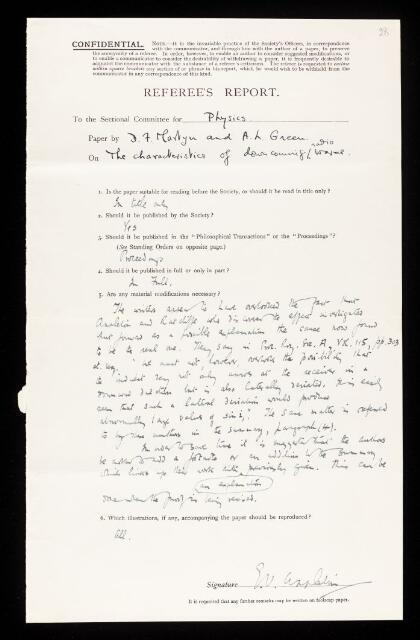 28
CONFIDENTIAL NOTE.—It is the invariable practice of the Society's Officers, in correspondence
with the communicator, and through him with the author of a paper, to preserve
the anonymity of a referee. In order, however, to enable an author to consider suggested modifications, or
to enable a communicator to consider the desirability of withdrawing a paper, it is frequently desirable to
acquaint the communicator with the substance of a referee's criticisms. The referee is requested to enclose
within square brackets any section of or phrase in his report, which he would wish to be withheld from the
communicator in any correspondence of this kind.
REFEREE'S REPORT.
To the Sectional Committee for Physics.
Paper by D. F. Martyn and A. L. Green
On The characteristics of downcoming radio waves.
1. Is the paper suitable for reading before the Society, or should it be read in title only?
In title only
2. Should it be published by the Society?
Yes
3. Should it be published in the "Philosophical Transactions" or the "Proceedings"?
(See Standing Orders on opposite page.)
Proceedings
4. Should it be published in full or only in part?
In Full.
5. Are any material modifications necessary?
The writers appear to have overlooked the fact that
Appleton and Ratcliffe who discovered the effect investigated
put forward as a possible explanation the cause now found
to be the real one. They say in Proc. Roy. Soc. A, Vol. 115, pp. 303
et seq. "we must not, however, overlook the possibility that
the indirect ray not only arrives at the receiver in a
downward direction but is also laterally deviated. It is easily
seen that such a lateral deviation would produce
abnormally large values of sin i,". The same matter is referred
to by these writers in the summary, paragraph (4).
In order to save time it is suggested that the authors
be asked to add a footnote or an addition to the summary
which links up their work with an explanation previously given. This can be
done when the proof is being revised.
6. Which illustrations, if any, accompanying the paper should be reproduced?
All.
Signature E. V. Appleton
It is requested that any further remarks may be written on foolscap paper.